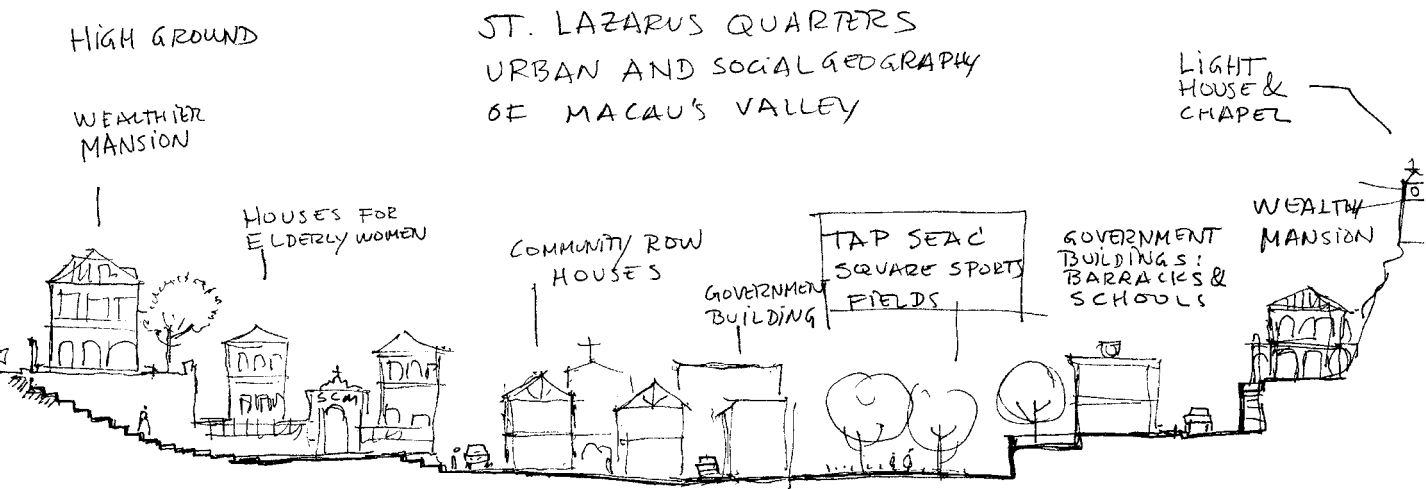 HIGH GROUND
ST. LAZARUS QUARTERS
URBAN AND SOCIAL GEOGRAPHY
OF MACAU'S VALLEY
LIGHT
HOUSE &
CHAPEL
WEALTHIER
MANSION
HOUSES FOR
ELDERLY WOMEN
COMMUNITY ROW
HOUSES
GOVERNMENT
BUILDING
TAP SEAC
SQUARE SPORTS
FIELDS
GOVERNMENT
BUILDINGS:
BARRACKS &
SCHOOLS
WEALTHY
MANSION
SCM